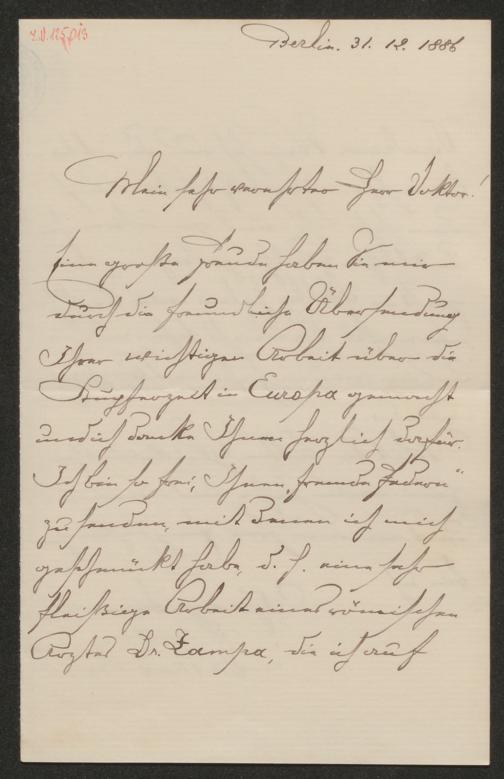 I.N. 125.013
Berlin. 31. 12. 1886
Mein sehr verehrter Herr Doktor!
Eine große Freude haben Sie mir
durch die freundliche Übersendung
Ihrer wichtigen Arbeit über die
Kupferzeit in Europa gemacht
und ich danke Ihnen herzlich dafür.
Ich bin so frei, Ihnen „fremde Federn“
zu senden, mit denen ich mich
geschmückt habe, d. h. eine sehr
fleißige Arbeit eines römischen
Arztes Dr. Zampa, die ich auf